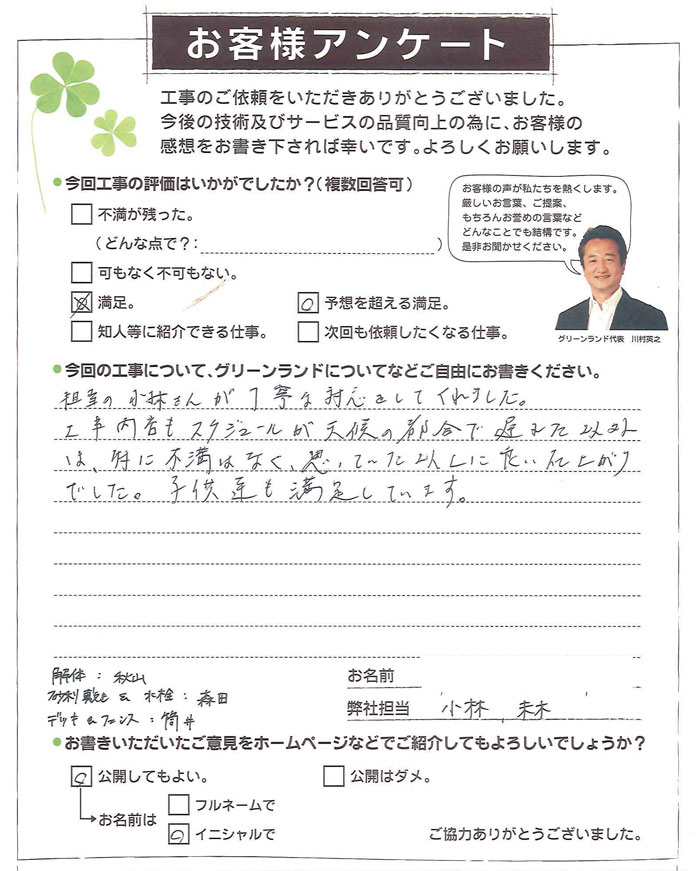 お客様アンケート
工事のご依頼をいただきありがとうございました。
今後の技術及びサービスの品質向上の為に、お客様の
感想をお書き下されば幸いです。よろしくお願いします。
今回工事の評価はいかがでしたか？（複数回答可）
不満が残った。
（どんな点で？：　）
可もなく不可もない。
満足。
予想を超える満足。
知人等に紹介できる仕事。
次回も依頼したくなる仕事。
お客様の声が私たちを熱くします。
厳しいお言葉、ご提案、
もちろんお誉めの言葉など
どんなことでも結構です。
是非お聞かせください。
グリーンランド代表　川村英之
今回の工事について、グリーンランドについてなどご自由にお書きください。
担当の小林さんが丁寧な対応をしてくれました。
工事内容もスケジュールが天候の都合で遅れた以外
は、特に不満はなく、思っていた以上に良い仕上がり
でした。子供達も満足しています。
解体：秋山
砂利敷き & 水栓：森田
デッキ & フェンス：筒井
お名前
弊社担当　小林
お書きいただいたご意見をホームページなどでご紹介してもよろしいでしょうか？
公開してもよい。
公開はダメ。
お名前は
フルネームで
イニシャルで
ご協力ありがとうございました。